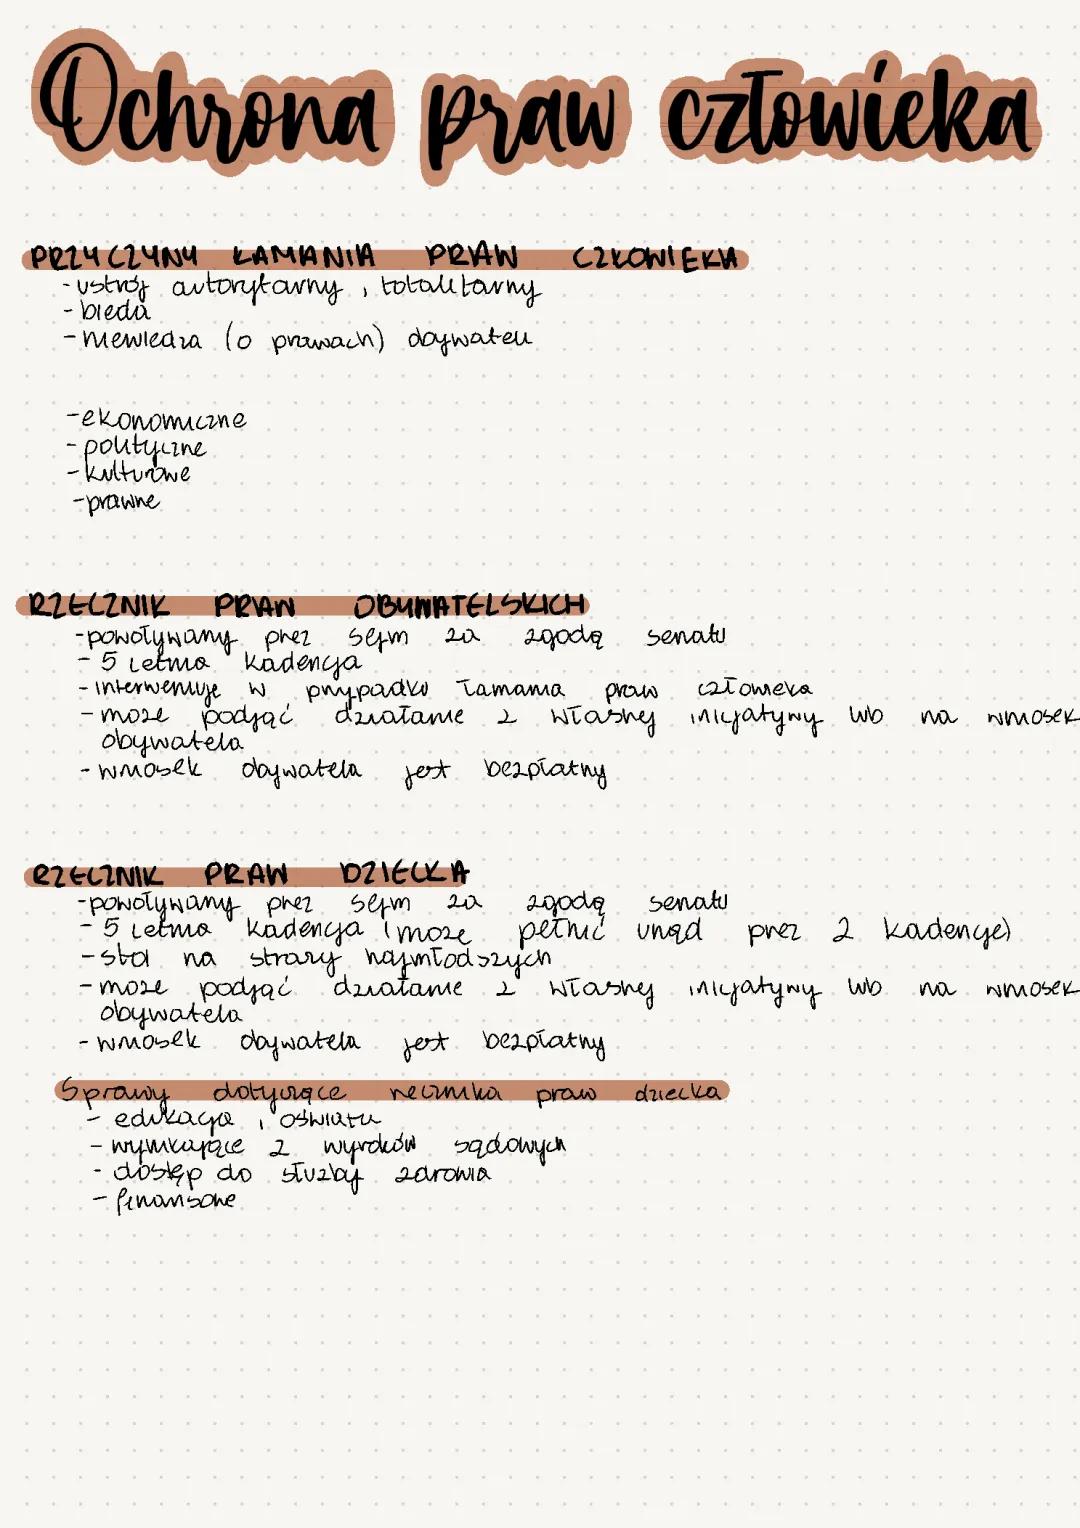 Ochrona praw człowieka
PRZYCZYNY ŁAMANIA PRAW CZŁOWIEKA
- ustrój autorytarny, totalitarny
- bieda
- niewiedza (o prawach) obywateli
- ekonomiczne
- polityczne
- kulturowe
- prawne
RZECZNIK PRAW OBYWATELSKICH
- powoływany przez sejm za zgodą senatu
- 5 letnia kadencja
- interweniuje w przypadku łamania praw człowieka
- może podjąć działanie z własnej inicjatywy lub na wniosek
obywatela
- wniosek obywatela jest bezpłatny
RZECZNIK PRAW DZIECKA
- powoływany przez sejm za zgodą senatu
- 5 letnia kadencja (może pełnić urząd przez 2 kadencje)
- stoi na straży najmłodszych
- może podjąć działanie z własnej inicjatywy lub na wniosek
obywatela
- wniosek obywatela jest bezpłatny
Sprawy dotyczące rzecznika praw dziecka
- edukacja, oświata
- wynikające z wyroków sądowych
- dostęp do służby zdrowia
- finansowe